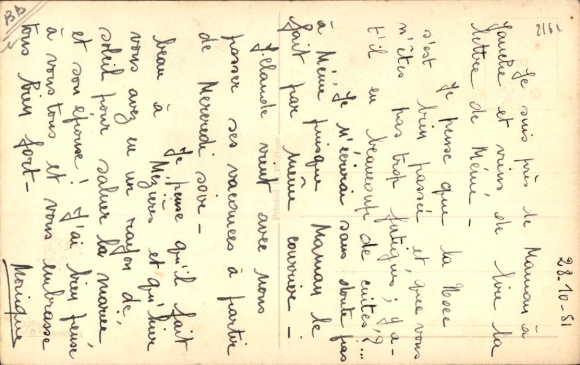 BD
2161
28-10-81
Je suis près de Maman à
et viens de lire la
lettre de Mémé -
Je pense que la Noce
s'est bien passée et que vous
n'êtes pas trop fatigués ; y a-
t'il eu beaucoup de cuites ?...
Je n'écrirai sans doute pas
à Mémé puisque Maman le
fait par même courrier -
vient avec nous
passer ses vacances à partir
de Mercredi soir -
Je pense qu'il fait
beau à Mézières et qu'hier
vous avez eu un rayon de
soleil pour saluer la mariée
et son épouse ! J'ai bien pensé
à vous tous et vous embrasse
tous bien fort -
Monique